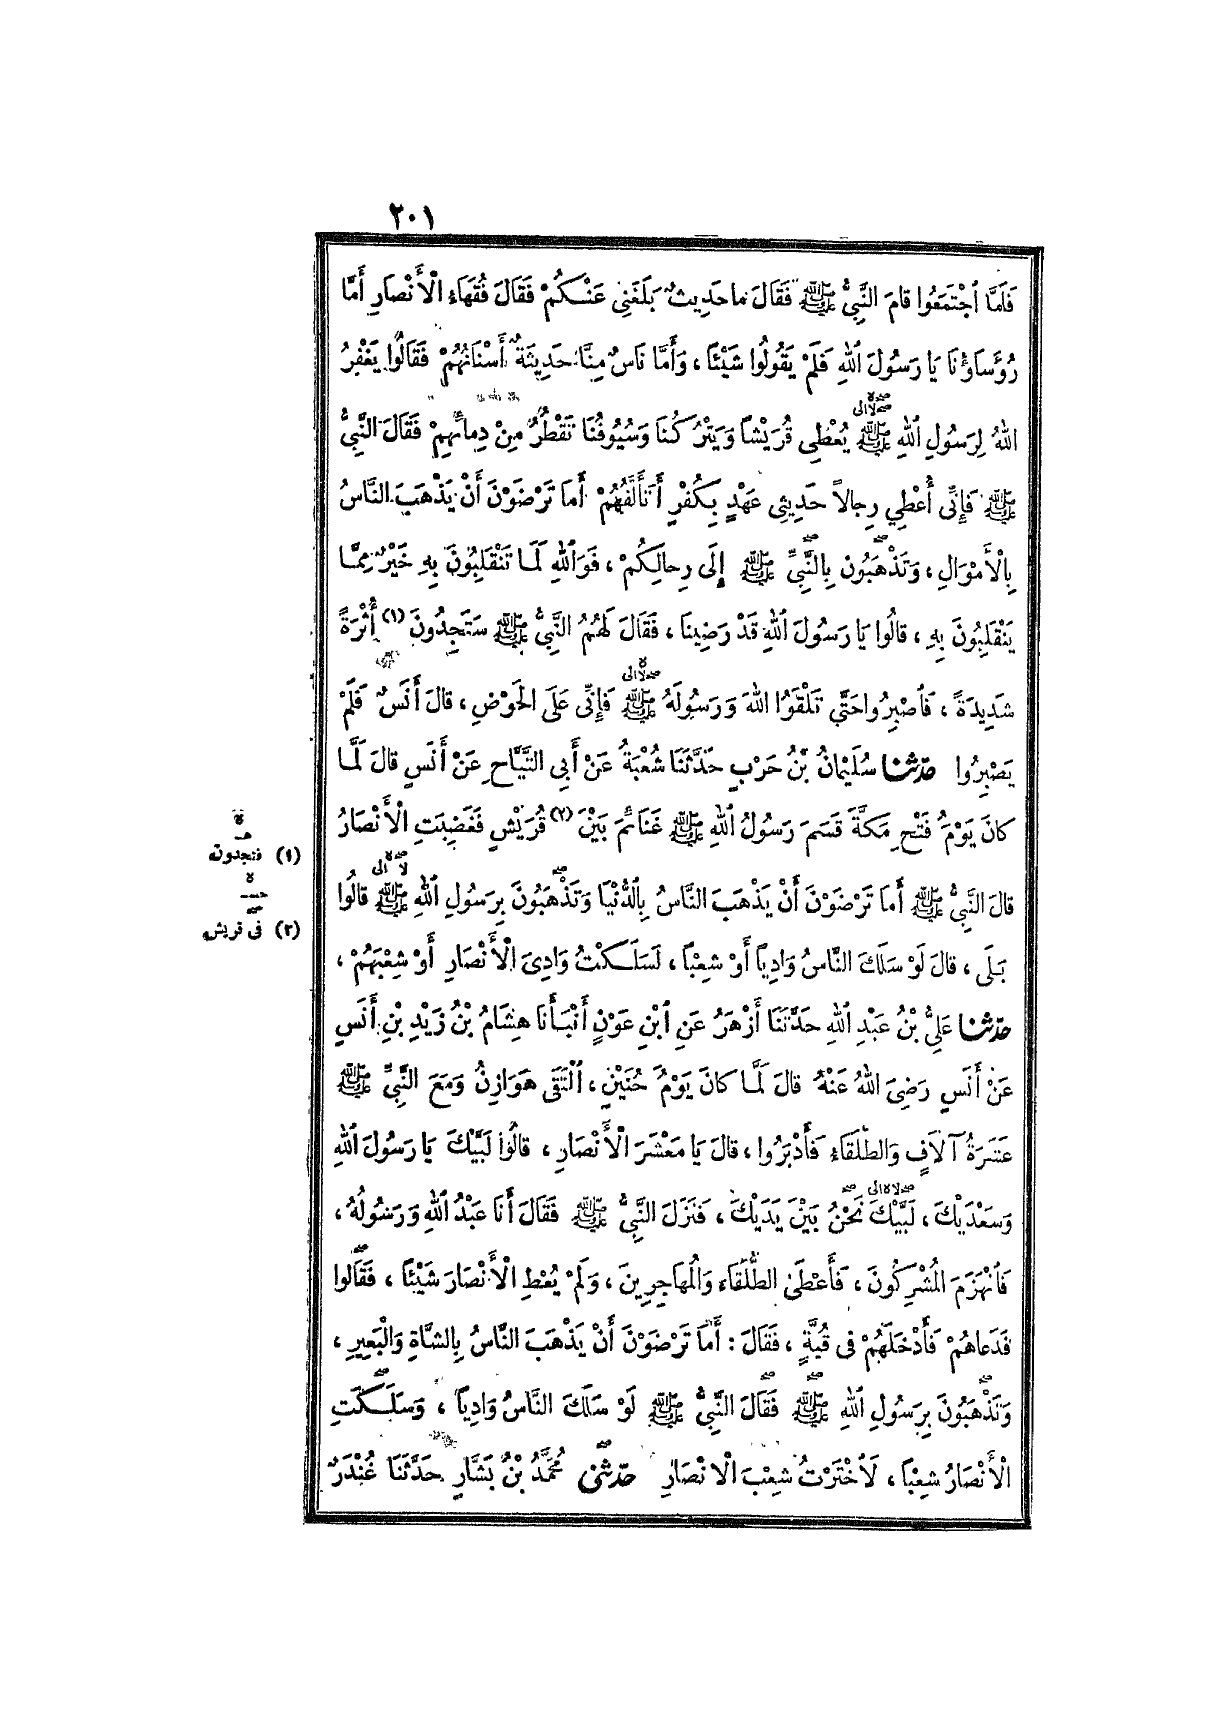 ٢٠١
فَلَمَّا ٱجْتَمَعُوا قَامَ النَّبِيُّ ﷺ فَقَالَ مَا حَدِيثٌ بَلَغَنِي عَنْكُمْ فَقَالَ فُقَهَاءُ الْأَنْصَارِ أَمَّا
رُؤَسَاؤُنَا يَا رَسُولَ اللهِ فَلَمْ يَقُولُوا شَيْئًا ، وَأَمَّا نَاسٌ مِنَّا حَدِيثَةٌ أَسْنَانُهُمْ فَقَالُوا يَغْفِرُ
اللهُ لِرَسُولِ اللهِ ﷺ يُعْطِي قُرَيْشًا وَيَتْرُكُنَا وَسُيُوفُنَا تَقْطُرُ مِنْ دِمَائِهِمْ فَقَالَ النَّبِيُّ
ﷺ فَإِنِّي أُعْطِي رِجَالاً حَدِيثِي عَهْدٍ بِكُفْرٍ أَتَأَلَّفُهُمْ أَمَا تَرْضَوْنَ أَنْ يَذْهَبَ النَّاسُ
بِالْأَمْوَالِ ، وَتَذْهَبُونَ بِالنَّبِيِّ ﷺ إِلَى رِحَالِكُمْ ، فَوَاللهِ لَمَا تَنْقَلِبُونَ بِهِ خَيْرٌ مِمَّا
يَنْقَلِبُونَ بِهِ ، قَالُوا يَا رَسُولَ اللهِ قَدْ رَضِينَا ، فَقَالَ لَهُمُ النَّبِيُّ ﷺ سَتَجِدُونَ (١) أُثْرَةً
شَدِيدَةً ، فَاصْبِرُوا حَتَّى تَلْقَوُا اللهَ وَرَسُولَهُ ﷺ فَإِنِّي عَلَى الْحَوْضِ ، قَالَ أَنَسٌ فَلَمْ
يَصْبِرُوا حدثنا سُلَيْمَانُ بْنُ حَرْبٍ حَدَّثَنَا شُعْبَةُ عَنْ أَبِي التَّيَّاحِ عَنْ أَنَسٍ قَالَ لَمَّا
كَانَ يَوْمُ فَتْحِ مَكَّةَ قَسَمَ رَسُولُ اللهِ ﷺ غَنَائِمَ بَيْنَ (٢) قُرَيْشٍ فَغَضِبَتِ الْأَنْصَارُ
قَالَ النَّبِيُّ ﷺ أَمَا تَرْضَوْنَ أَنْ يَذْهَبَ النَّاسُ بِالدُّنْيَا وَتَذْهَبُونَ بِرَسُولِ اللهِ ﷺ قَالُوا
بَلَى ، قَالَ لَوْ سَلَكَ النَّاسُ وَادِيًا أَوْ شِعْبًا ، لَسَلَكْتُ وَادِيَ الْأَنْصَارِ أَوْ شِعْبَهُمْ ،
حدثنا عَلِيُّ بْنُ عَبْدِ اللهِ حَدَّثَنَا أَزْهَرُ عَنِ ابْنِ عَوْنٍ أَنْبَأَنَا هِشَامُ بْنُ زَيْدِ بْنِ أَنَسٍ
عَنْ أَنَسٍ رَضِيَ اللهُ عَنْهُ قَالَ لَمَّا كَانَ يَوْمُ حُنَيْنٍ ، الْتَقَى هَوَازِنُ وَمَعَ النَّبِيِّ ﷺ
عَشَرَةُ آلَافٍ وَالطُّلَقَاءُ فَأَدْبَرُوا ، قَالَ يَا مَعْشَرَ الْأَنْصَارِ ، قَالُوا لَبَّيْكَ يَا رَسُولَ اللهِ
وَسَعْدَيْكَ ، لَبَّيْكَ نَحْنُ بَيْنَ يَدَيْكَ ، فَنَزَلَ النَّبِيُّ ﷺ فَقَالَ أَنَا عَبْدُ اللهِ وَرَسُولُهُ ،
فَانْهَزَمَ الْمُشْرِكُونَ ، فَأَعْطَى الطُّلَقَاءَ وَالْمُهَاجِرِينَ ، وَلَمْ يُعْطِ الْأَنْصَارَ شَيْئًا ، فَقَالُوا
فَدَعَاهُمْ فَأَدْخَلَهُمْ فِي قُبَّةٍ ، فَقَالَ : أَمَا تَرْضَوْنَ أَنْ يَذْهَبَ النَّاسُ بِالشَّاةِ وَالْبَعِيرِ ،
وَتَذْهَبُونَ بِرَسُولِ اللهِ ﷺ فَقَالَ النَّبِيُّ ﷺ لَوْ سَلَكَ النَّاسُ وَادِيًا ، وَسَلَكَتِ
الْأَنْصَارُ شِعْبًا ، لَاخْتَرْتُ شِعْبَ الْانْصَارِ حدثني مُحَمَّدُ بْنُ بَشَّارٍ حَدَّثَنَا غُنْدَرٌ
(١) فتجدون
(٢) في قريش